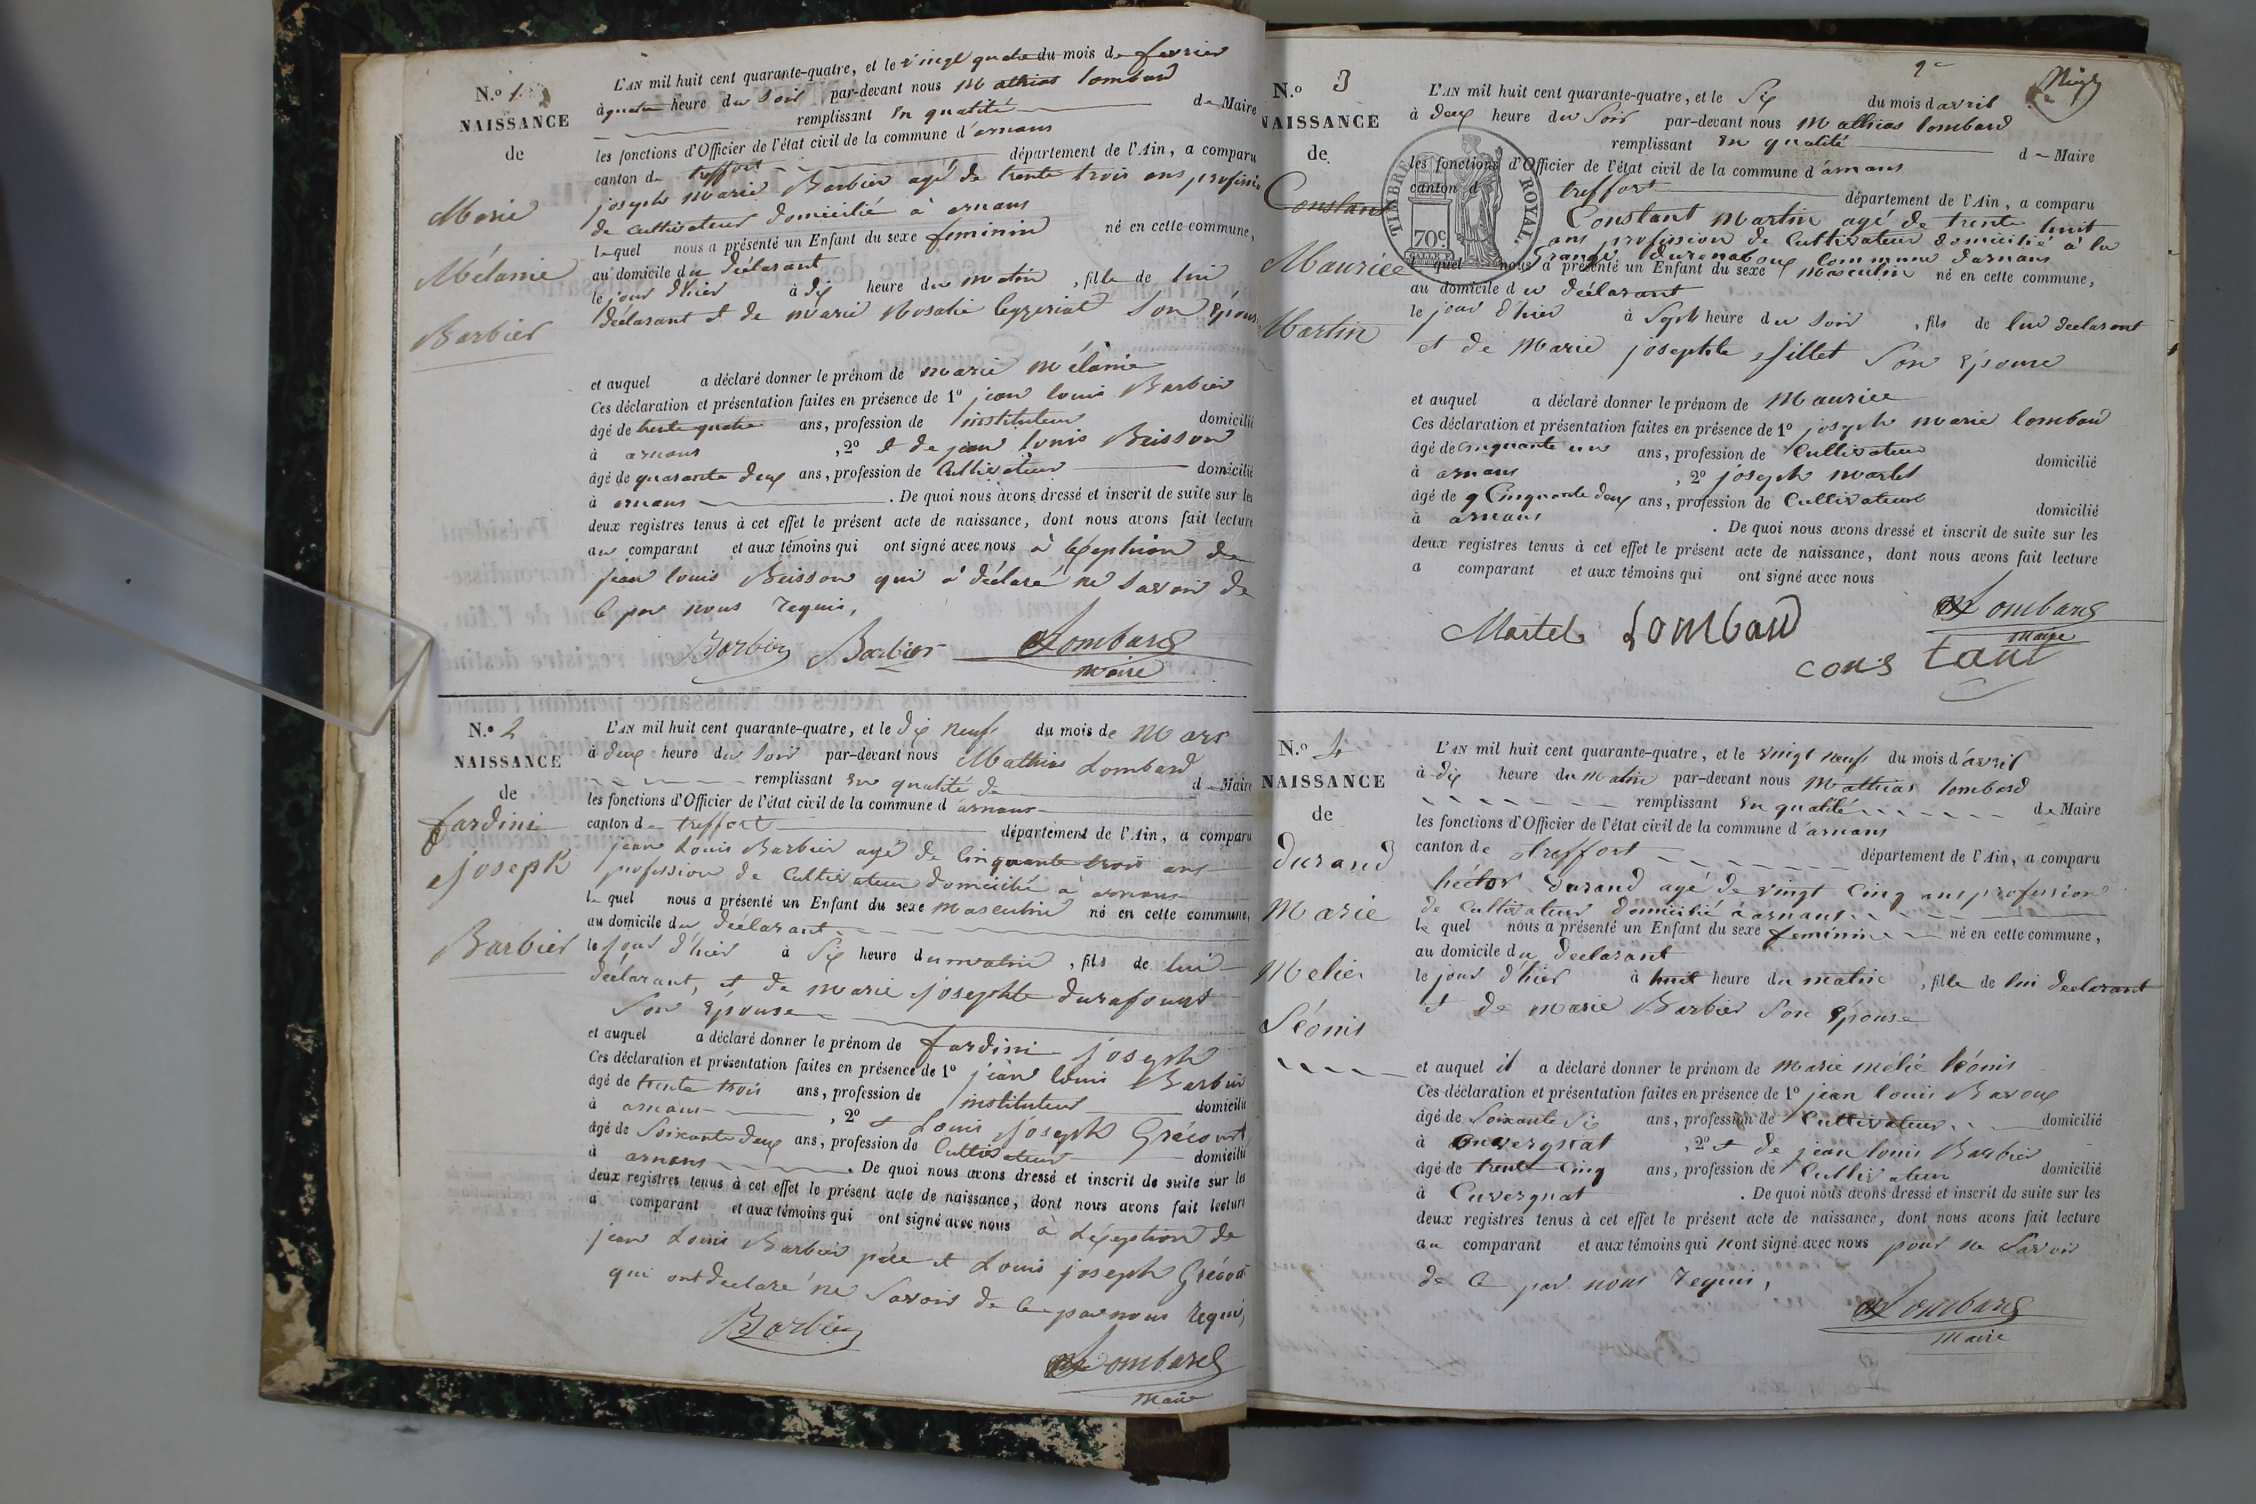 N.º 1
NAISSANCE
de
Marie
Mélanie
Barbier
L'AN mil huit cent quarante-quatre, et le vingt quatre du mois de fevrier
à quatre heure du soir par-devant nous Mathias Lombard
remplissant en qualité de Maire
les fonctions d'Officier de l'état civil de la commune d'arnans
canton de treffort département de l'Ain, a comparu
joseph marie Barbier agé de trente trois ans profession
de cultivateur domicilié à arnans
lequel nous a présenté un Enfant du sexe feminin né en cette commune,
au domicile du déclarant
le jour d'hier à dix heure du matin, fille de lui
déclarant et de marie Rosalie leyzeriat son épouse
et auquel a déclaré donner le prénom de marie mélanie
Ces déclaration et présentation faites en présence de 1º jean louis Barbier
âgé de trente quatre ans, profession de instituteur domicilié
à arnans, 2º et de jean louis Buisson
âgé de quarante deux ans, profession de Cultivateur domicilié
à arnans. De quoi nous avons dressé et inscrit de suite sur les
deux registres tenus à cet effet le présent acte de naissance, dont nous avons fait lecture
au comparant et aux témoins qui ont signé avec nous à léxeption de
jean louis Buisson qui a déclaré ne savoir de
ce par nous requis,
Barbier Barbier Lombard
maire
N.º 2
NAISSANCE
de
fardini
joseph
Barbier
L'AN mil huit cent quarante-quatre, et le dix neuf du mois de Mars
à deux heure du soir par-devant nous Mathias Lombard
remplissant en qualité de d Maire
les fonctions d'Officier de l'état civil de la commune d'arnans
canton de treffort département de l'Ain, a comparu
jean Louis Barbier agé de cinquante trois ans
profession de Cultivateur domicilié à arnans
lequel nous a présenté un Enfant du sexe masculin né en cette commune,
au domicile du déclarant
le jour d'hier à six heure du matin, fils de lui
déclarant, et de marie josephte durafourt
son épouse
et auquel a déclaré donner le prénom de fardini joseph
Ces déclaration et présentation faites en présence de 1º jean louis Barbier
âgé de trente trois ans, profession de instituteur domicilié
à arnans, 2º et Louis joseph Grécourt
âgé de soixante deux ans, profession de Cultivateur domicilié
à arnans. De quoi nous avons dressé et inscrit de suite sur les
deux registres tenus à cet effet le présent acte de naissance, dont nous avons fait lecture
a comparant et aux témoins qui ont signé avec nous à léxeption de
jean Louis Barbier père et Louis joseph
qui ont declaré ne savoir de ce par nous requis,
Barbier
Lombard
Maire
2e
N.º 3
NAISSANCE
de
Constant
Maurice
Martin
L'AN mil huit cent quarante-quatre, et le six du mois d'avril
à deux heure du soir par-devant nous Mathias Lombard
remplissant en qualité de Maire
les fonctions d'Officier de l'état civil de la commune d'arnans
canton d treffort département de l'Ain, a comparu
Constant Martin agé de trente huit
ans profession de Cultivateur domicilié à la
Grange commune d'arnans
quel nous a présenté un Enfant du sexe masculin né en cette commune,
au domicile du déclarant
le jour d'hier à sept heure du soir, fils de lui declarant
et de Marie josephte fillet son épouse
et auquel a déclaré donner le prénom de Maurice
Ces déclaration et présentation faites en présence de 1º joseph marie lombard
âgé de cinquante un ans, profession de Cultivateur domicilié
à arnans, 2º joseph martel
âgé de cinquante deux ans, profession de Cultivateur domicilié
à arnans. De quoi nous avons dressé et inscrit de suite sur les
deux registres tenus à cet effet le présent acte de naissance, dont nous avons fait lecture
a comparant et aux témoins qui ont signé avec nous
Martel Lombard Lombard
maire
constant
TIMBRE ROYAL.
70c
N.º 4
NAISSANCE
de
Durand
Marie
Melie
Léonis
L'AN mil huit cent quarante-quatre, et le vingt neuf du mois d'avril
à dix heure du matin par-devant nous Mathias Lombard
remplissant en qualité de Maire
les fonctions d'Officier de l'état civil de la commune d'arnans
canton de treffort département de l'Ain, a comparu
hector durand agé de vingt cinq ans profession
de Cultivateur domicilié à arnans
le quel nous a présenté un Enfant du sexe feminin né en cette commune,
au domicile du declarant
le jour d'hier à huit heure du matin, fille de lui declarant
et de marie Barbier son épouse
et auquel il a déclaré donner le prénom de marie mélie Léonis
Ces déclaration et présentation faites en présence de 1º jean louis Bavoux
âgé de soixante six ans, profession de Cultivateur domicilié
à Cuvergnat, 2º et de jean louis Barbier
âgé de trente cinq ans, profession de Cultivateur domicilié
à Cuvergnat. De quoi nous avons dressé et inscrit de suite sur les
deux registres tenus à cet effet le présent acte de naissance, dont nous avons fait lecture
au comparant et aux témoins qui n'ont signé avec nous pour ne savoir
de ce par nous requis,
Lombard
Maire